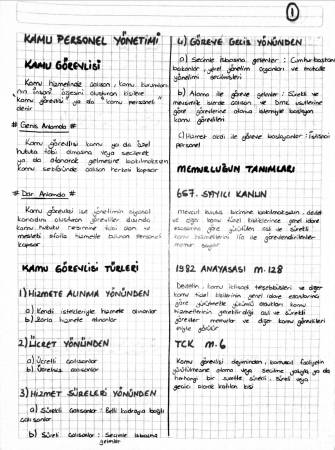 1
KAMU PERSONEL YÖNETİMİ
KAMU GÖREVLİSİ
Kamu hizmetinde çalışan, kamu kurumları
nın insan öğesini oluşturan kişilere
kamu görevlisi ya da "kamu personeli"
denir
# Geniş Anlamda #
Kamu görevlisi kamu ya da özel
hukuka tabi olmasına veya seçilerek
ya da atanarak gelmesine bakılmaksızın
kamu sektöründe çalışan herkesi kapsar
# Dar Anlamda #
Kamu görevlisi ise yönetimin siyasal
kanadını oluşturan görevliler dışında
kamu hukuku rejimine tabi olan ve
mesleki sıfatla hizmette bulunan personeli
kapsar
KAMU GÖREVLİSİ TÜRLERİ
1) HİZMETE ALINMA YÖNÜNDEN
a) Kendi istekleriyle hizmete alınanlar
b) Zorla hizmete alınanlar
2) ÜCRET YÖNÜNDEN
a) Ücretli çalışanlar
b) Ücretsiz çalışanlar
3) HİZMET SÜRELERİ YÖNÜNDEN
a) Sürekli çalışanlar: Belli kadroya bağlı
çalışanlar
b) Süreli çalışanlar: Seçimle işbaşına
gelenler
4) GÖREVE GELİŞ YÖNÜNDEN
a) Seçimle işbaşına gelenler: Cumhurbaşkanı
bakanlar, yerel yönetim organları ve mahalle
yönetimi seçilmişleri
b) Atama ile göreve gelenler: Sürekli ve
mevsimlik işlerde çalışan, ve DMK usullerine
göre görevlerine atama işlemiyle başlayan
kamu görevlileri
c) Hizmet akdi ile göreve başlayanlar: İstisnai
personel
MEMURLUĞUN TANIMLARI
657. SAYILI KANUN
Mevcut kuruluş biçimine bakılmaksızın, devlet
ve diğer kamu tüzel kişiliklerince genel idare
esaslarına göre yürütülen asli ve sürekli
kamu hizmetlerini ifa ile görevlendirilenler
memur sayılır
1982 ANAYASASI m.128
Devletin, kamu iktisadi teşebbüsleri ve diğer
kamu tüzel kişilerinin genel idare esaslarına
göre yürütmekle yükümlü oldukları kamu
hizmetlerinin gerektirdiği asli ve sürekli
görevler memurlar ve diğer kamu görevlileri
eliyle görülür
TCK m.6
Kamu görevlisi deyiminden, kamusal faaliyetin
yürütülmesine atama veya seçilme yoluyla ya da
herhangi bir surette sürekli, süreli veya
geçici olarak katılan kişi